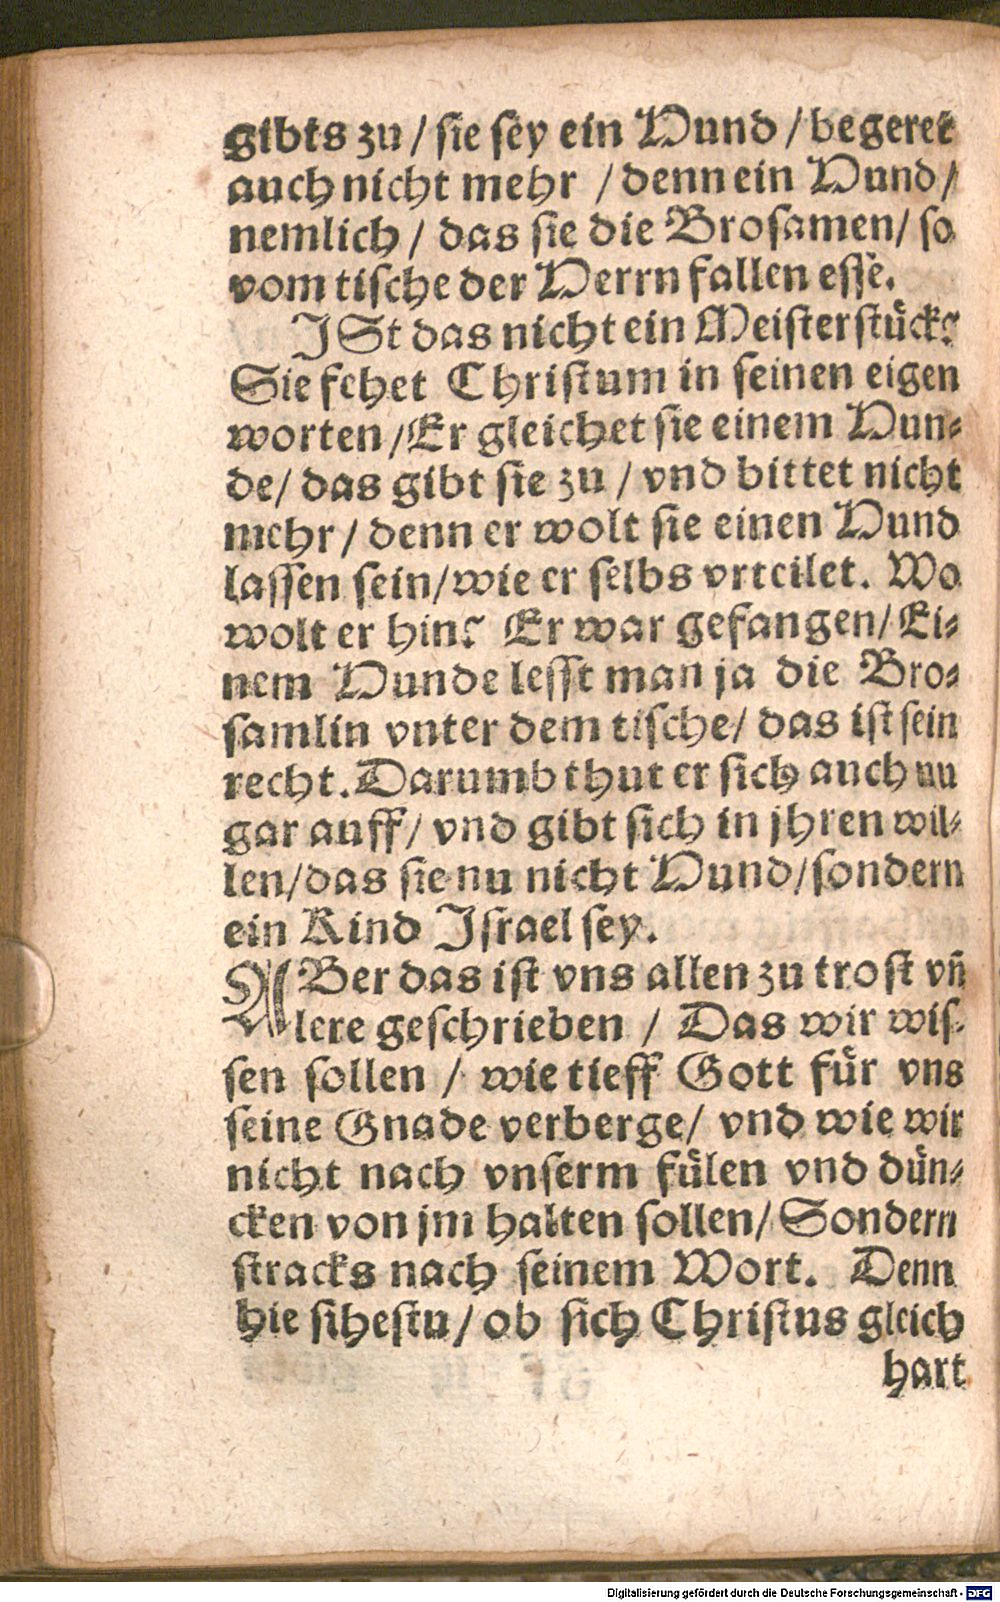 gibts zu / sie sey ein Hund / begeret
auch nicht mehr / denn ein Hund /
nemlich / das sie die Brosamen / so
vom tische der Herrn fallen esse.
JSt das nicht ein Meisterstück?
Sie fehet Christum in seinen eigen
worten / Er gleichet sie einem Hun⸗
de / das gibt sie zu / vnd bittet nicht
mehr / denn er wolt sie einen Hund
lassen sein / wie er selbs vrteilet. Wo
wolt er hin? Er war gefangen / Ei⸗
nem Hunde lesst man ja die Bro⸗
samlin vnter dem tische / das ist sein
recht. Darumb thut er sich auch nu
gar auff / vnd gibt sich in jhren wil⸗
len / das sie nu nicht Hund / sondern
ein Kind Jsrael sey.
ABer das ist vns allen zu trost vñ
lere geschrieben / Das wir wis⸗
sen sollen / wie tieff Gott für vns
seine Gnade verberge / vnd wie wir
nicht nach vnserm fülen vnd dün⸗
cken von jm halten sollen / Sondern
stracks nach seinem Wort. Denn
hie sihestu / ob sich Christus gleich
hart
Digitalisierung gefördert durch die Deutsche Forschungsgemeinschaft - DFG